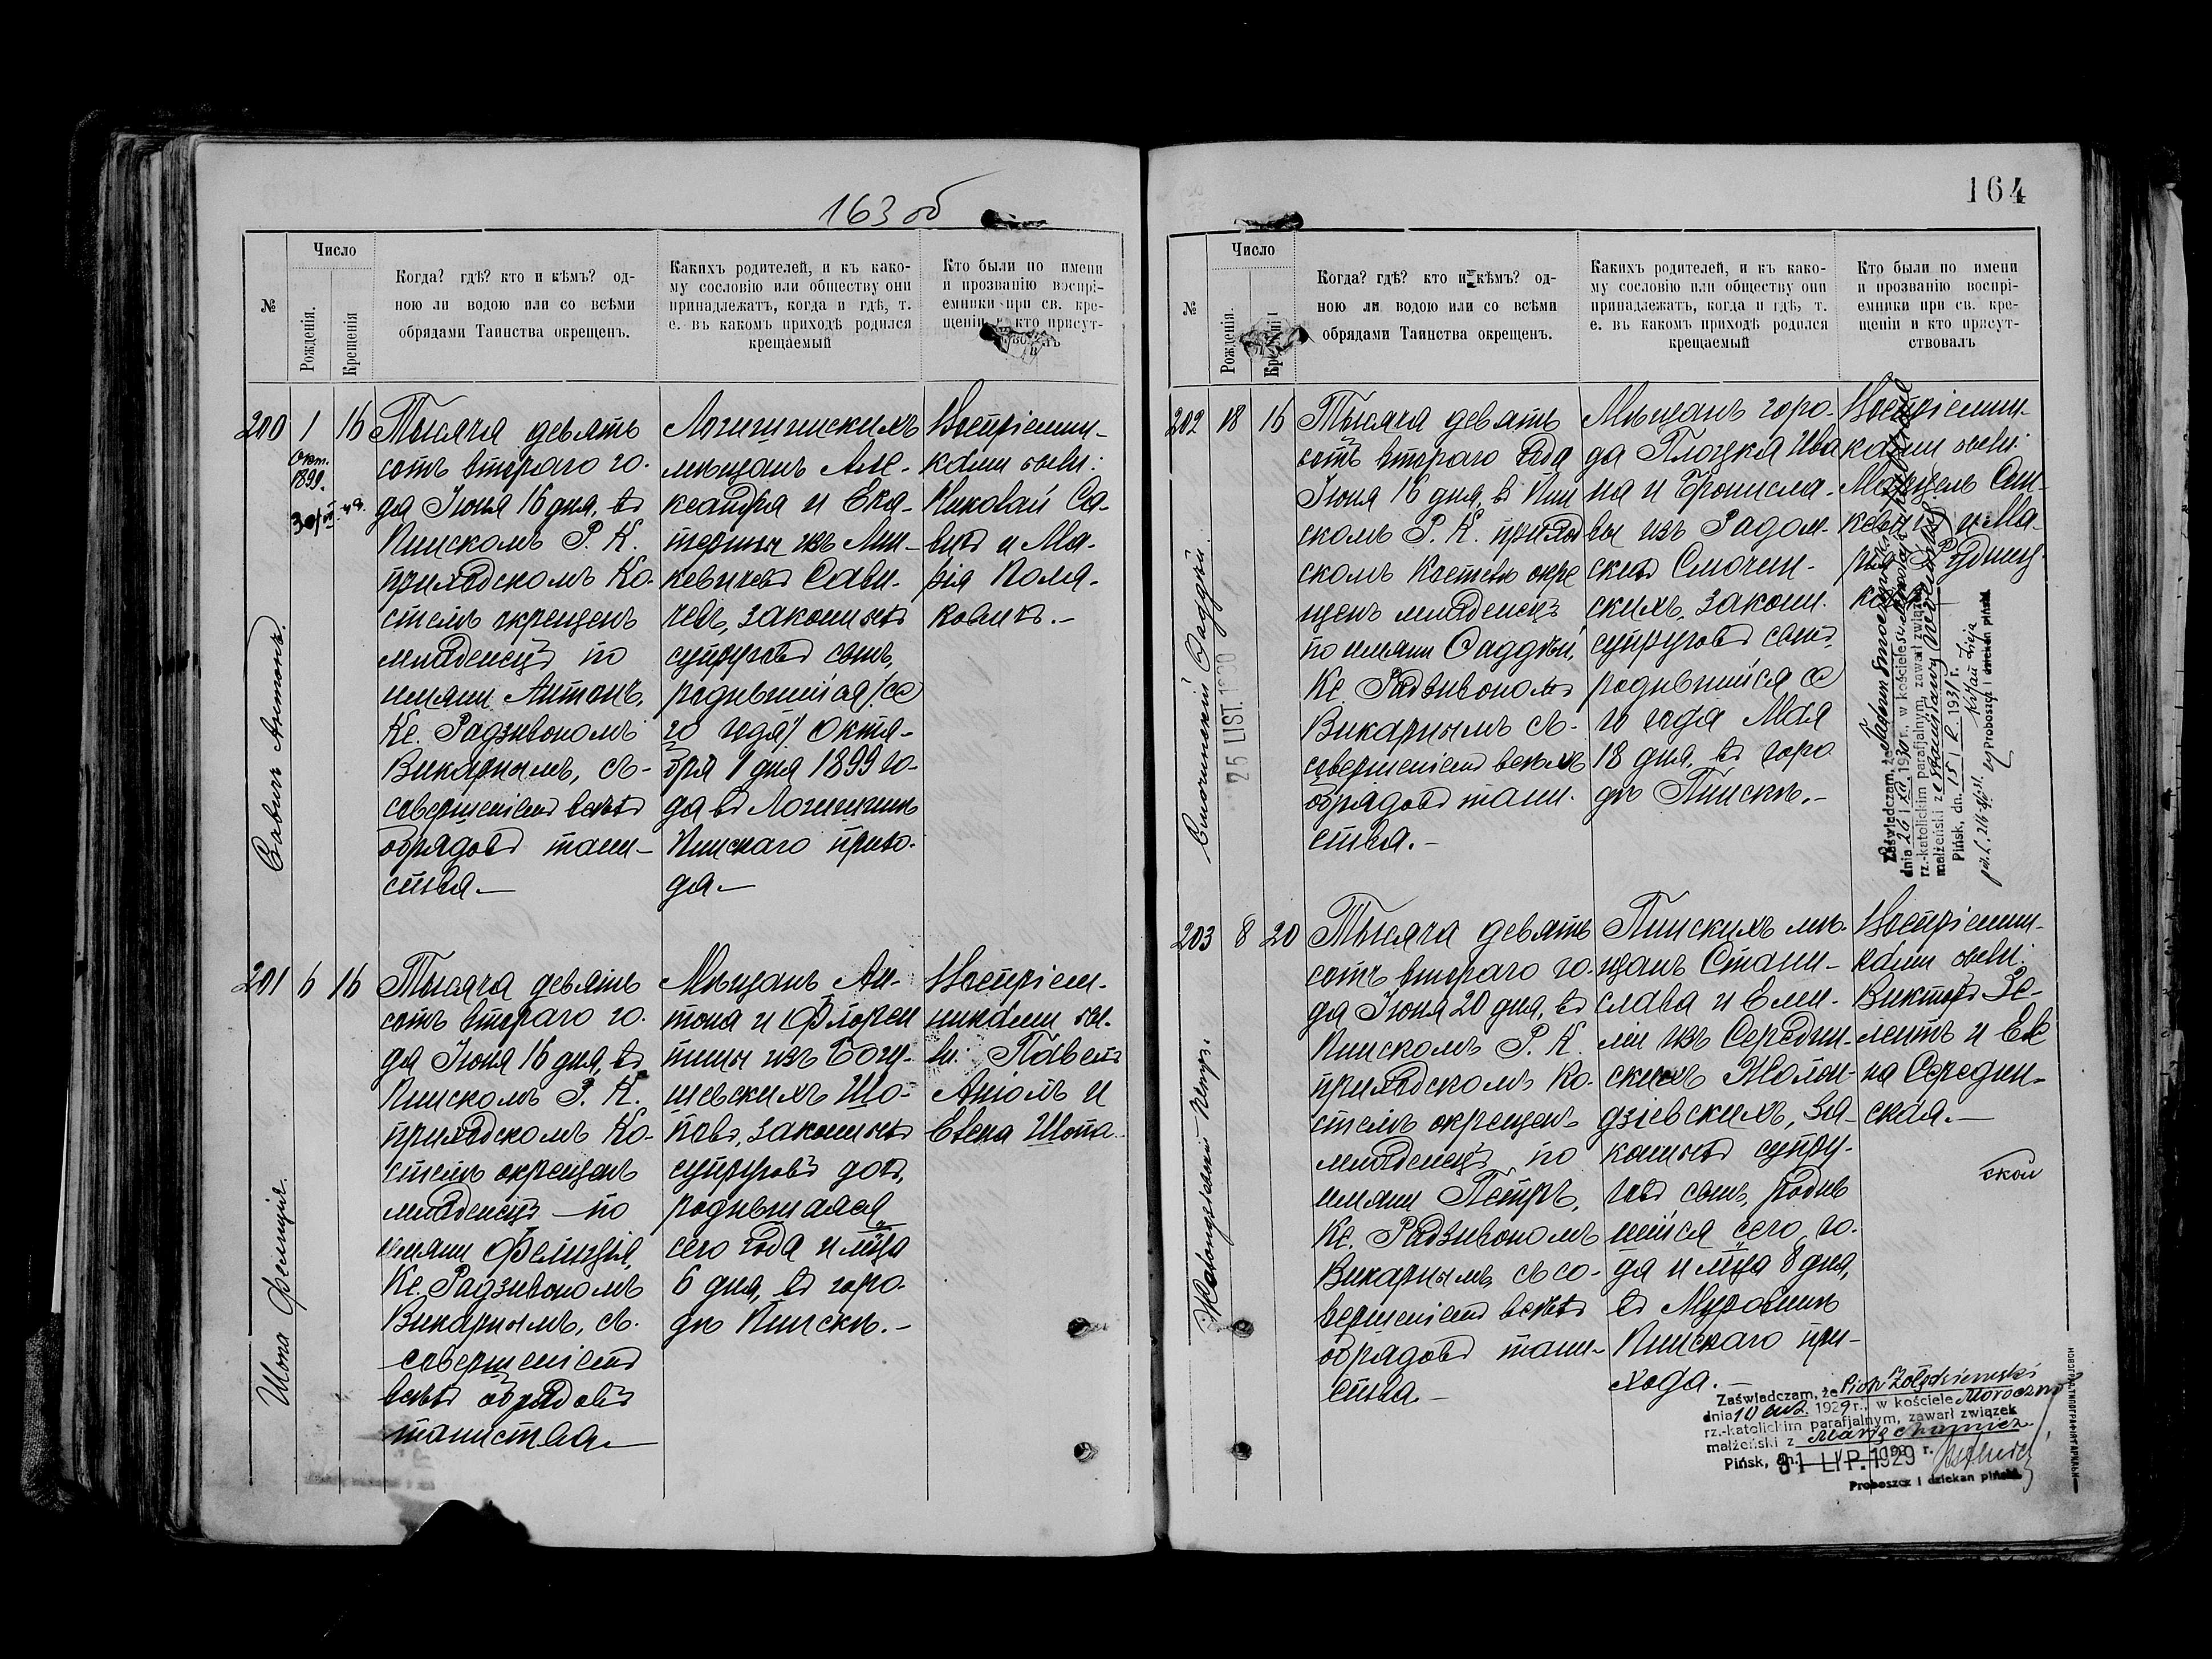 163 об
№
Число
Рожденія.
Крещенія
Когда? гдѣ? кто и кѣмъ? од-
ною ли водою или со всѣми
обрядами Таинства окрещенъ.
Какихъ родителей, и къ како-
му сословію или обществу они
принадлежатъ, когда и гдѣ, т.
е. въ какомъ приходѣ родился
крещаемый
Кто были по имени
и прозванію воспрі-
емники при св. кре-
щеніи и кто присут-
Савичъ Антонъ.
200
1
Окт.
1899.
16
Тысяча девять
сотъ втораго го-
да Іюня 16 дня, въ
Пинскомъ Р. К.
приходскомъ Ко-
стелѣ окрещенъ
младенецъ по
имени Антонъ,
Кс. Радзивономъ
Викарнымъ, съ-
совершеніемъ всѣхъ
обрядовъ таин-
ства.—
Логишинскихъ
мѣщанъ Але-
ксандра и Ека-
терины изъ Мин-
кевичевъ Сави-
чей, законныхъ
супруговъ сынъ,
родившійся /се
го года/ Октя-
бря 1 дня 1899 го-
да въ Логишинѣ
Пинскаго прихо-
да.—
Воспріемни-
ками были:
Николай Са-
вичъ и Ма-
рія Поля-
ковичъ.—
Шопа Фелиція.
201
6
16
Тысяча девять
сотъ втораго го-
да Іюня 16 дня, въ
Пинскомъ Р. К.
приходскомъ Ко-
стелѣ окрещенъ
младенецъ по
имени Фелиція,
Кс. Радзивономъ
Викарнымъ, съ-
совершеніемъ
всѣхъ обрядовъ
таинства.—
Мѣщанъ Ан-
тона и Флорен
тины изъ Богу-
шевскихъ Шо-
повъ, законныхъ
супруговъ дочь,
родившаяся
сего года и мѣца
6 дня, въ горо-
дѣ Пинскѣ.—
Воспріем-
никами бы-
ли: Павелъ
Аніолъ и
Елена Шопа.
164
№
Число
Рожденія.
Когда? гдѣ? кто и кѣмъ? од-
ною ли водою или со всѣми
обрядами Таинства окрещенъ.
Какихъ родителей, и къ како-
му сословію или обществу они
принадлежатъ, когда и гдѣ, т.
е. въ какомъ приходѣ родился
крещаемый
Кто были по имени
и прозванію воспрі-
емники при св. кре-
щеніи и кто присут-
ствовалъ
Смочинскій Фаддей.
25 LIST. 1930
202
18
16
Тысяча девять
сотъ втораго года
Іюня 16 дня, въ Пин
скомъ Р. К. приход
скомъ Костелѣ окре
щенъ младенецъ
по имени Фаддѣй,
Кс. Радзивономъ
Викарнымъ съ-
совершеніемъ всѣхъ
обрядовъ таин-
ства.—
Мѣщанъ горо-
да Плоцка Ива
на и Бронисла-
вы изъ Радом-
скихъ Смочин-
скихъ, законн.
супруговъ сынъ,
родившійся се
го года Мая
18 дня, въ горо
дѣ Пинскѣ.—
Воспріемни-
ками были:
Zaświadczam, że Tadeusz
dnia 26 XII 1930 r. w kościele
rz.-katolickim parafjalnym, zawarł związek
małżeński z
Pińsk, dn. 15 1931 r.
Proboszcz i dziekan piński
Жолондзіевскій Петръ.
203
8
20
Тысяча девять
сотъ втораго го-
да Іюня 20 дня, въ
Пинскомъ Р. К.
приходскомъ Ко-
стелѣ окрещенъ
младенецъ по
имени Петръ,
Кс. Радзивономъ
Викарнымъ, съ со-
вершеніемъ всѣхъ
обрядовъ таин-
ства.—
Пинскихъ мѣ-
щанъ Стани-
слава и Еми-
ліи изъ Середин-
скихъ Жолон-
дзіевскихъ, за-
конныхъ супру-
говъ сынъ, родив
шійся сего го-
да и мѣца 8 дня,
въ Муровинѣ
Пинскаго при-
хода.—
Воспріемни-
ками были:
Викторъ Зе-
лентъ и Еле
на Середин-
ская.—
Zaświadczam, że Piotr Żołędziewski
dnia 10 1929 r., w kościele
rz.-katolickim parafjalnym, zawarł związek
małżeński z
Pińsk, dn. 31 LIP. 1929 r.
Proboszcz i dziekan piński